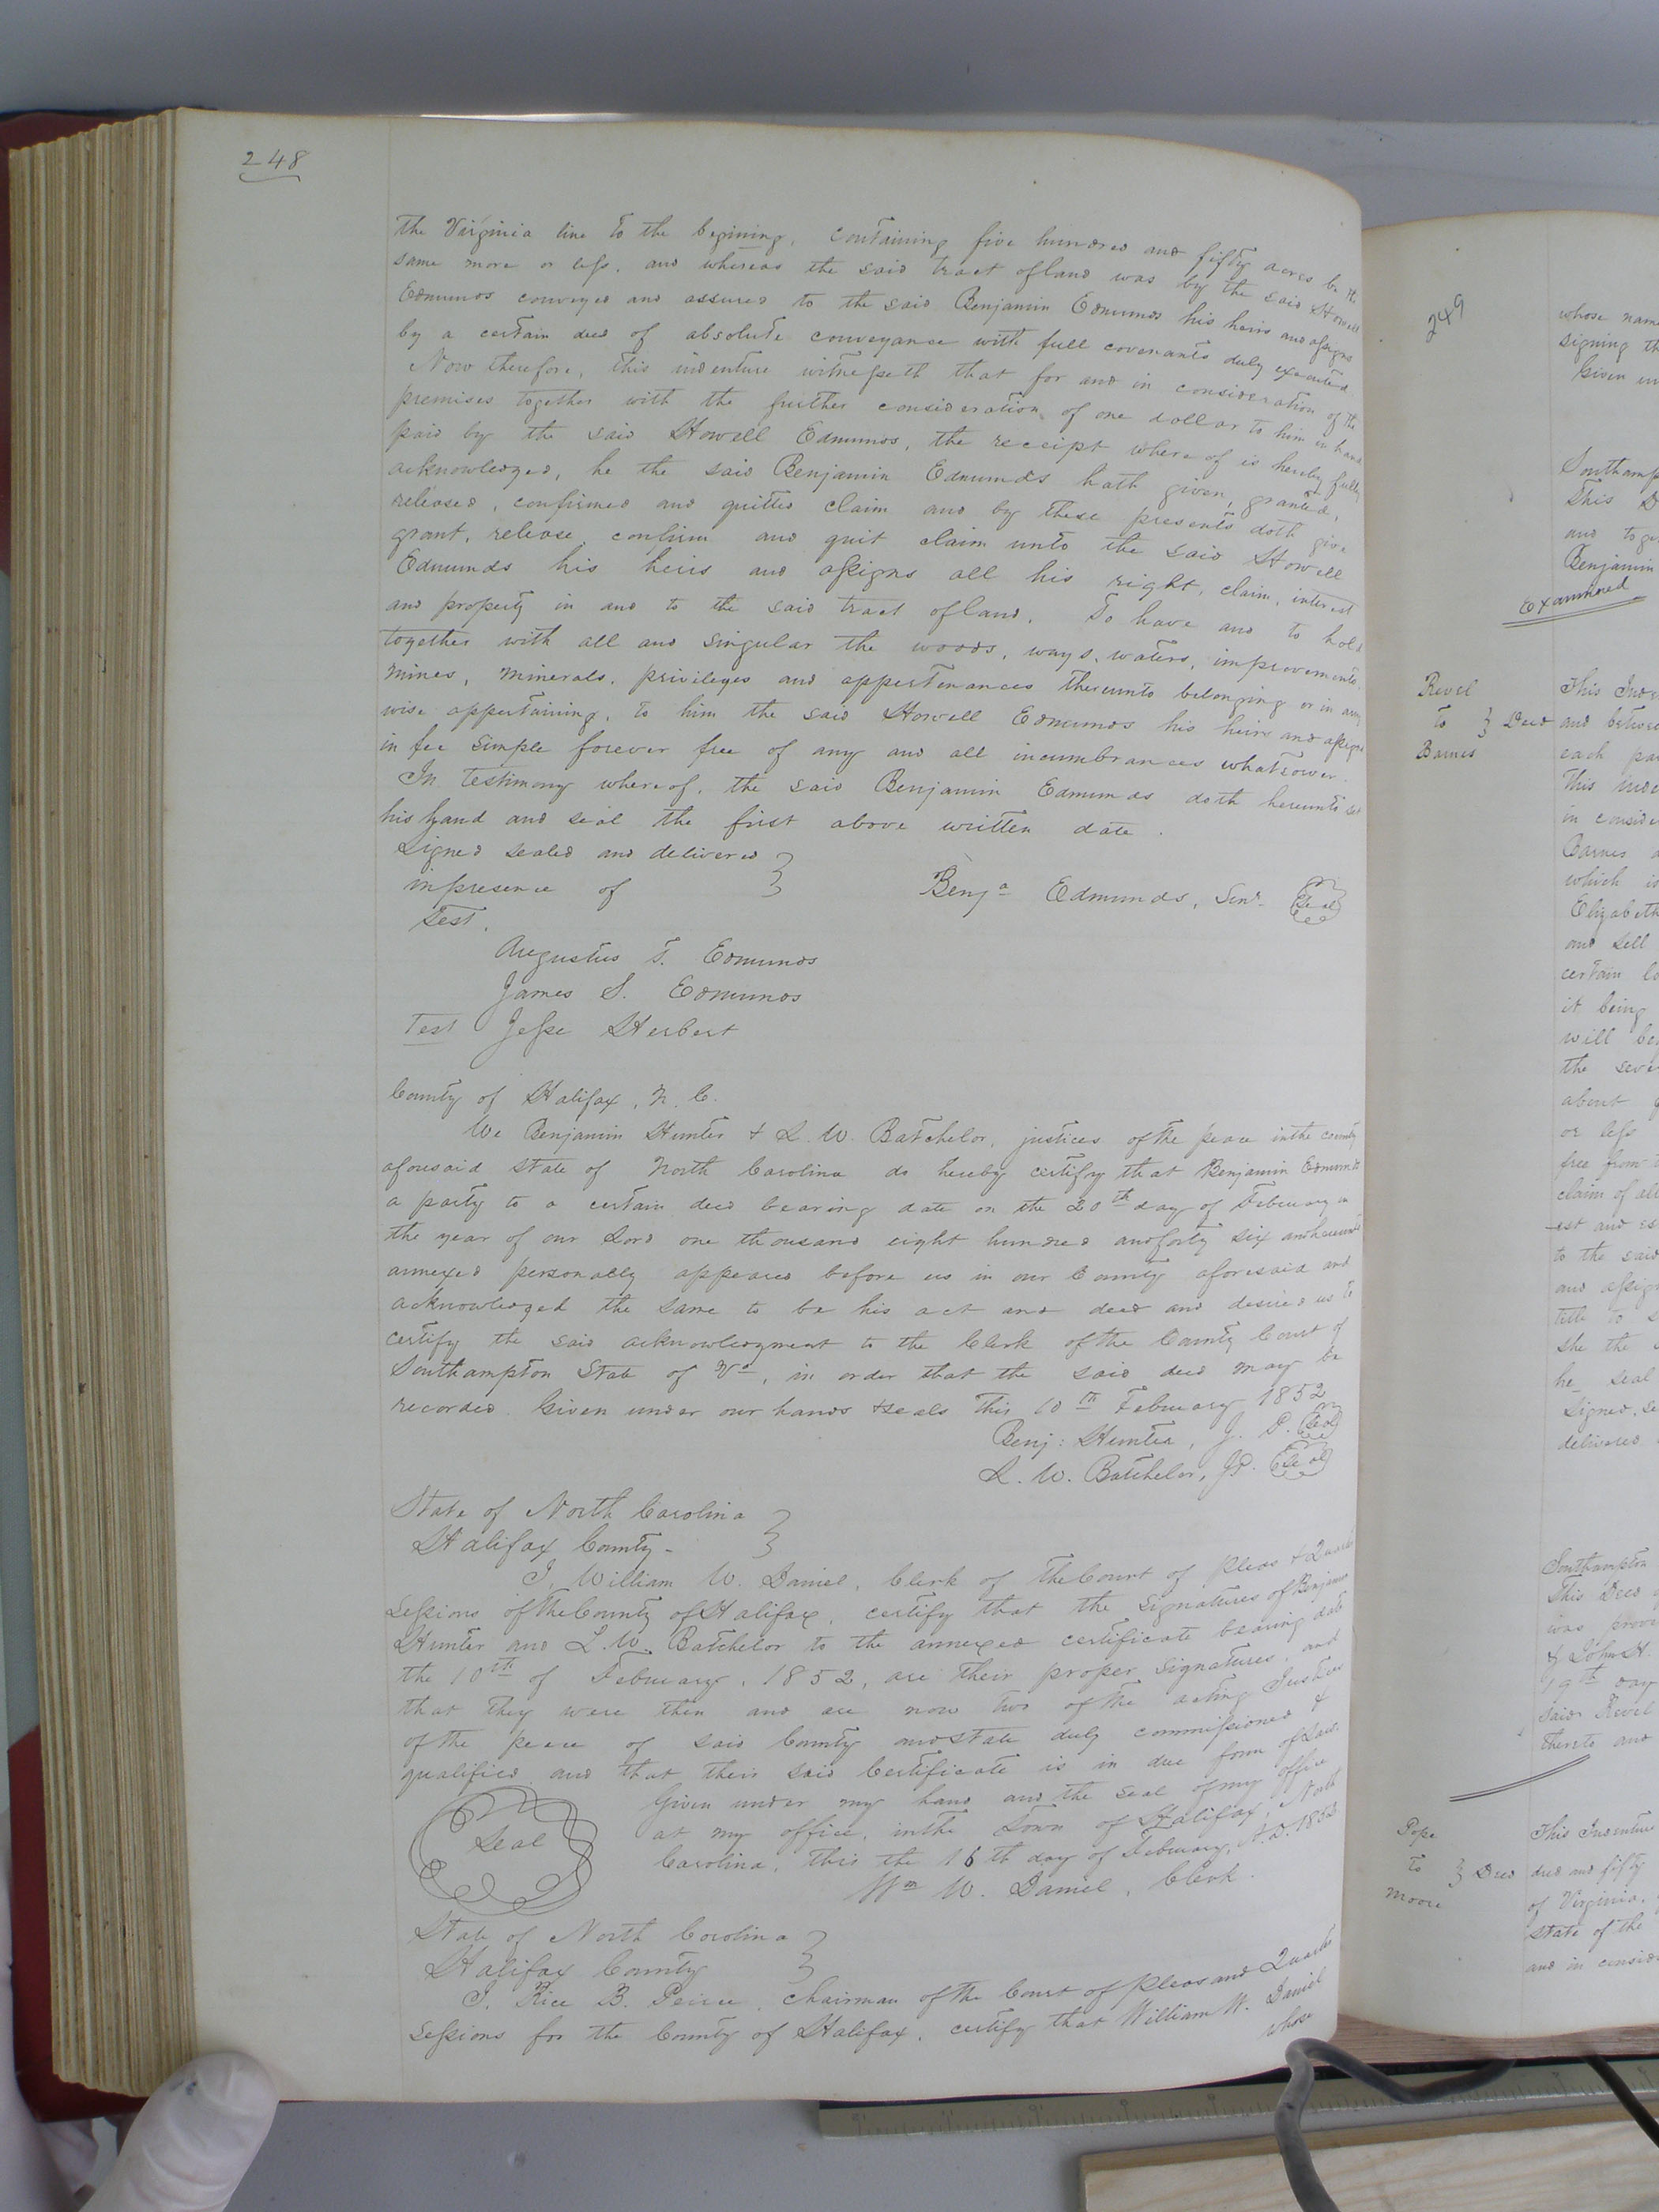 248
the Virginia line to the begining, containing five hundred and fifty acres be the
same more or less, and whereas the said tract of land was by the said Howell
Edmunds conveyed and assured to the said Benjamin Edmunds his heirs and assigns
by a certain deed of absolute conveyance with full covenants duly executed
Now therefore, this indenture witnesseth that for and in consideration of the
premises together with the further consideration of one dollar to him in hand
paid by the said Howell Edmunds, the receipt where of is hereby fully
acknowledged, he the said Benjamin Edmunds hath given, granted,
released, confirmed and quitted claim and by these presents doth give
grant, release, confirm and quit claim unto the said Howell
Edmunds his heirs and assigns all his right, claim, interest
and property in and to the said tract of land. To have and to hold
together with all and singular the woods, ways, waters, improvements,
mines, minerals, privileges and appertenances thereunto belonging or in any
wise appertaining, to him the said Howell Edmunds his heirs and assigns
in fee simple forever free of any and all incumbrances whatsoever.
In testimony whereof, the said Benjamin Edmunds doth hereunto set
his hand and seal the first above written date.
Signed sealed and delivered }
in presence of } Benja Edmunds, Senr. Seal
Test,
Augustus T. Edmunds
James S. Edmunds
Test Jesse Herbert
County of Halifax, N. C.
We Benjamin Hunter & L. W. Batchelor, justices of the peace in the county
aforesaid State of North Carolina do hereby certify that Benjamin Edmunds
a party to a certain deed bearing date on the 20th day of February in
the year of our Lord one thousand eight hundred and forty six and hereunto
annexed personally appeared before us in our County aforesaid and
acknowledged the same to be his act and deed and desired us to
certify the said acknowledgment to the Clerk of the County Court of
Southampton State of Va, in order that the said deed may be
recorded. Given under our hands & seals this 10th February 1852
Benj: Hunter, J. P. Seal
L. W. Batchelor, JP. Seal
State of North Carolina }
Halifax County - }
I, William W. Daniel, Clerk of the Court of Pleas & Quarter
Sessions of the County of Halifax, certify that the signatures of Benjamin
Hunter and L. W. Batchelor to the annexed certificate bearing date
the 10th of February, 1852, are their proper signatures, and
that they were then and are now two of the acting Justices
of the peace of said County and State duly commissioned &
qualified and that their said Certificate is in due form of Law.
Given under my hand and the seal of my office
Seal
at my office, in the Town of Halifax, North
Carolina, this the 16th day of February, A.D. 1852.
Wm W. Daniel, Clerk.
State of North Carolina }
Halifax County }
I, Rice B. Peirce, Chairman of the Court of Pleas and Quarter
Sessions for the County of Halifax, certify that William W. Daniel
whose
249
whose name
signing th
Given un
Southamp
This D
and toge
Benjamin
Examined
Revel
to } Deed
Barnes
This Inde
and betwee
each pa
This inde
in conside
Barnes a
which is
Elizabeth
and sell
certain lo
it being
will be
the seve
about
or less
free from
claim of all
-est and es
to the said
and assign
title to s
she the
he_ seal
Signed, se
delivered
Southampton
This Deed
was prove
& John H.
19th day
said Revel
thereto and
Pope
to } Deed
Moore
This Indenture
dred and fifty
of Virginia,
State of the
and in conside